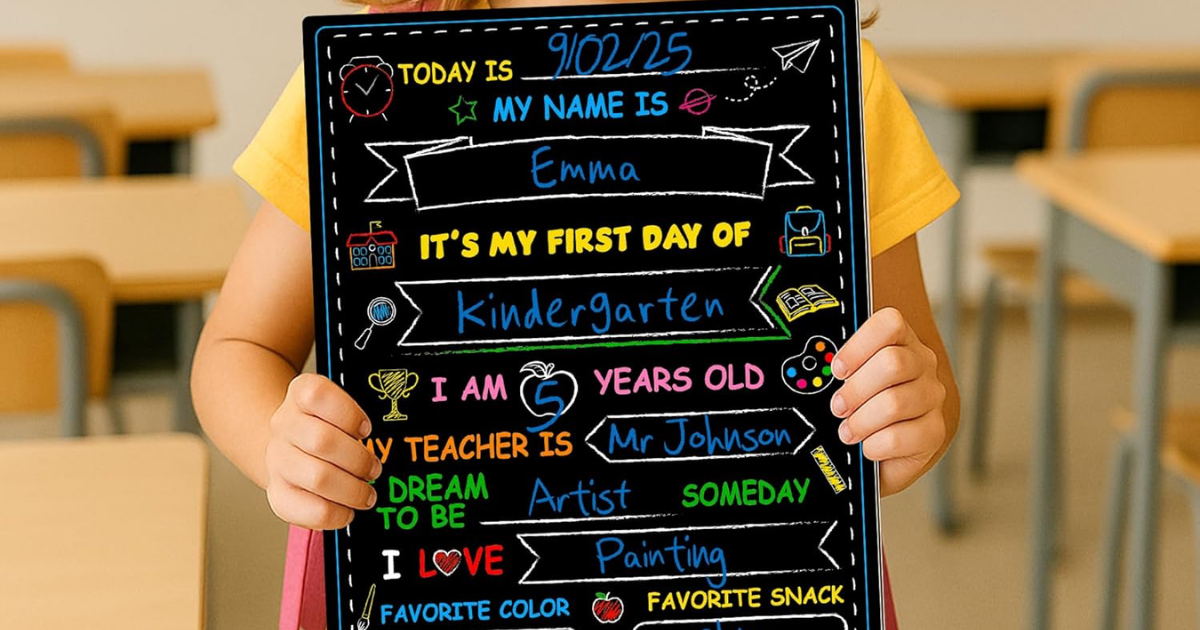 TODAY IS 9/02/25
MY NAME IS
Emma
IT'S MY FIRST DAY OF
Kindergarten
I AM 5 YEARS OLD
MY TEACHER IS Mr Johnson
DREAM TO BE Artist SOMEDAY
I LOVE Painting
FAVORITE COLOR FAVORITE SNACK